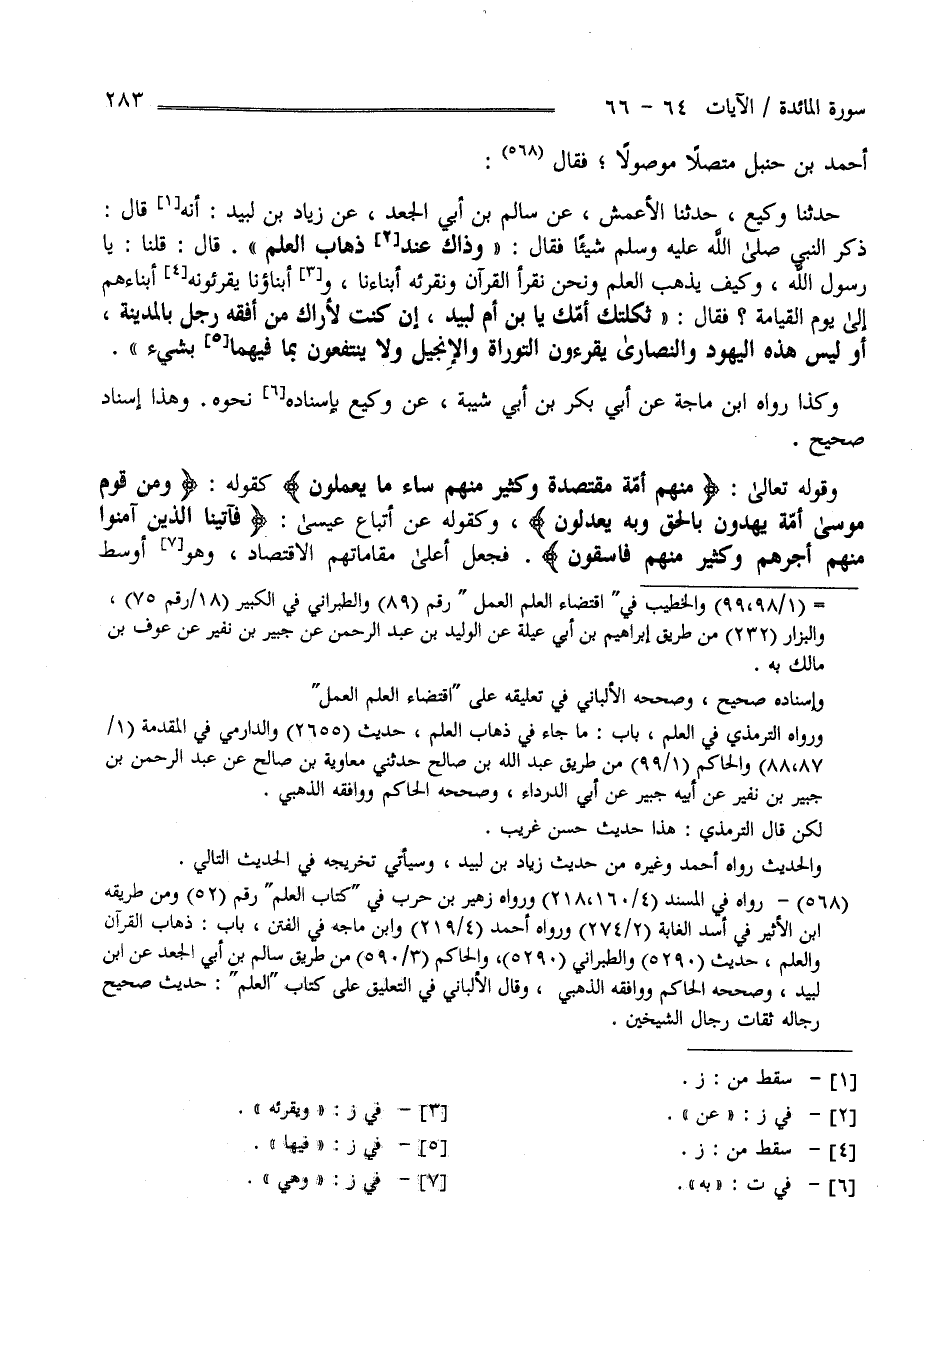 سورة المائدة / الآيات ٦٤ - ٦٦ ٢٨٣
أحمد بن حنبل متصلًا موصولًا ؛ فقال (٥٦٨) :
حدثنا وكيع ، حدثنا الأعمش ، عن سالم بن أبي الجعد ، عن زياد بن لبيد : أنه[١] قال :
ذكر النبي صلى الله عليه وسلم شيئًا فقال : « وذاك عند[٢] ذهاب العلم » . قال : قلنا : يا
رسول الله ، وكيف يذهب العلم ونحن نقرأ القرآن ونقرئه أبناءنا ، و[٣] أبناؤنا يقرئونه[٤] أبناءهم
إلى يوم القيامة ؟ فقال : « ثكلتك أمّك يا بن أم لبيد ، إن كنت لأراك من أفقه رجل بالمدينة ،
أو ليس هذه اليهود والنصارى يقرءون التوراة والإنجيل ولا ينتفعون بما فيهما[٥] بشيء » .
وكذا رواه ابن ماجة عن أبي بكر بن أبي شيبة ، عن وكيع بإسناده[٦] نحوه . وهذا إسناد
صحيح .
وقوله تعالى : ﴿ منهم أمّة مقتصدة وكثير منهم ساء ما يعملون ﴾ كقوله : ﴿ ومن قوم
موسى أمّة يهدون بالحق وبه يعدلون ﴾ ، وكقوله عن أتباع عيسى : ﴿ فآتينا الذين آمنوا
منهم أجرهم وكثير منهم فاسقون ﴾ . فجعل أعلى مقاماتهم الاقتصاد ، وهو[٧] أوسط
= (٩٩،٩٨/١) والخطيب في" اقتضاء العلم العمل " رقم (٨٩) والطبراني في الكبير (١٨/رقم ٧٥) ،
والبزار (٢٣٢) من طريق إبراهيم بن أبي عيلة عن الوليد بن عبد الرحمن عن جبير بن نفير عن عوف بن
مالك به .
وإسناده صحيح ، وصححه الألباني في تعليقه على "اقتضاء العلم العمل"
ورواه الترمذي في العلم ، باب : ما جاء في ذهاب العلم ، حديث (٢٦٥٥) والدارمي في المقدمة (١/
٨٨،٨٧) والحاكم (٩٩/١) من طريق عبد الله بن صالح حدثني معاوية بن صالح عن عبد الرحمن بن
جبير بن نفير عن أبيه جبير عن أبي الدرداء ، وصححه الحاكم ووافقه الذهبي .
لكن قال الترمذي : هذا حديث حسن غريب .
والحديث رواه أحمد وغيره من حديث زياد بن لبيد ، وسيأتي تخريجه في الحديث التالي .
(٥٦٨) - رواه في المسند (٢١٨،١٦٠/٤) ورواه زهير بن حرب في "كتاب العلم" رقم (٥٢) ومن طريقه
ابن الأثير في أسد الغابة (٢٧٤/٢) ورواه أحمد (٢١٩/٤) وابن ماجه في الفتن ، باب : ذهاب القرآن
والعلم ، حديث (٥٢٩٠) والطبراني (٥٢٩٠)، والحاكم (٥٩٠/٣) من طريق سالم بن أبي الجعد عن ابن
لبيد ، وصححه الحاكم ووافقه الذهبي ، وقال الألباني في التعليق على كتاب "العلم" : حديث صحيح
رجاله ثقات رجال الشيخين .
[١] - سقط من : ز .
[٢] - في ز : « عن » . [٣] - في ز : « ويقرئه » .
[٤] - سقط من : ز . [٥] - في ز : « فيها » .
[٦] - في ت : «به» . [٧] - في ز : « وهي » .